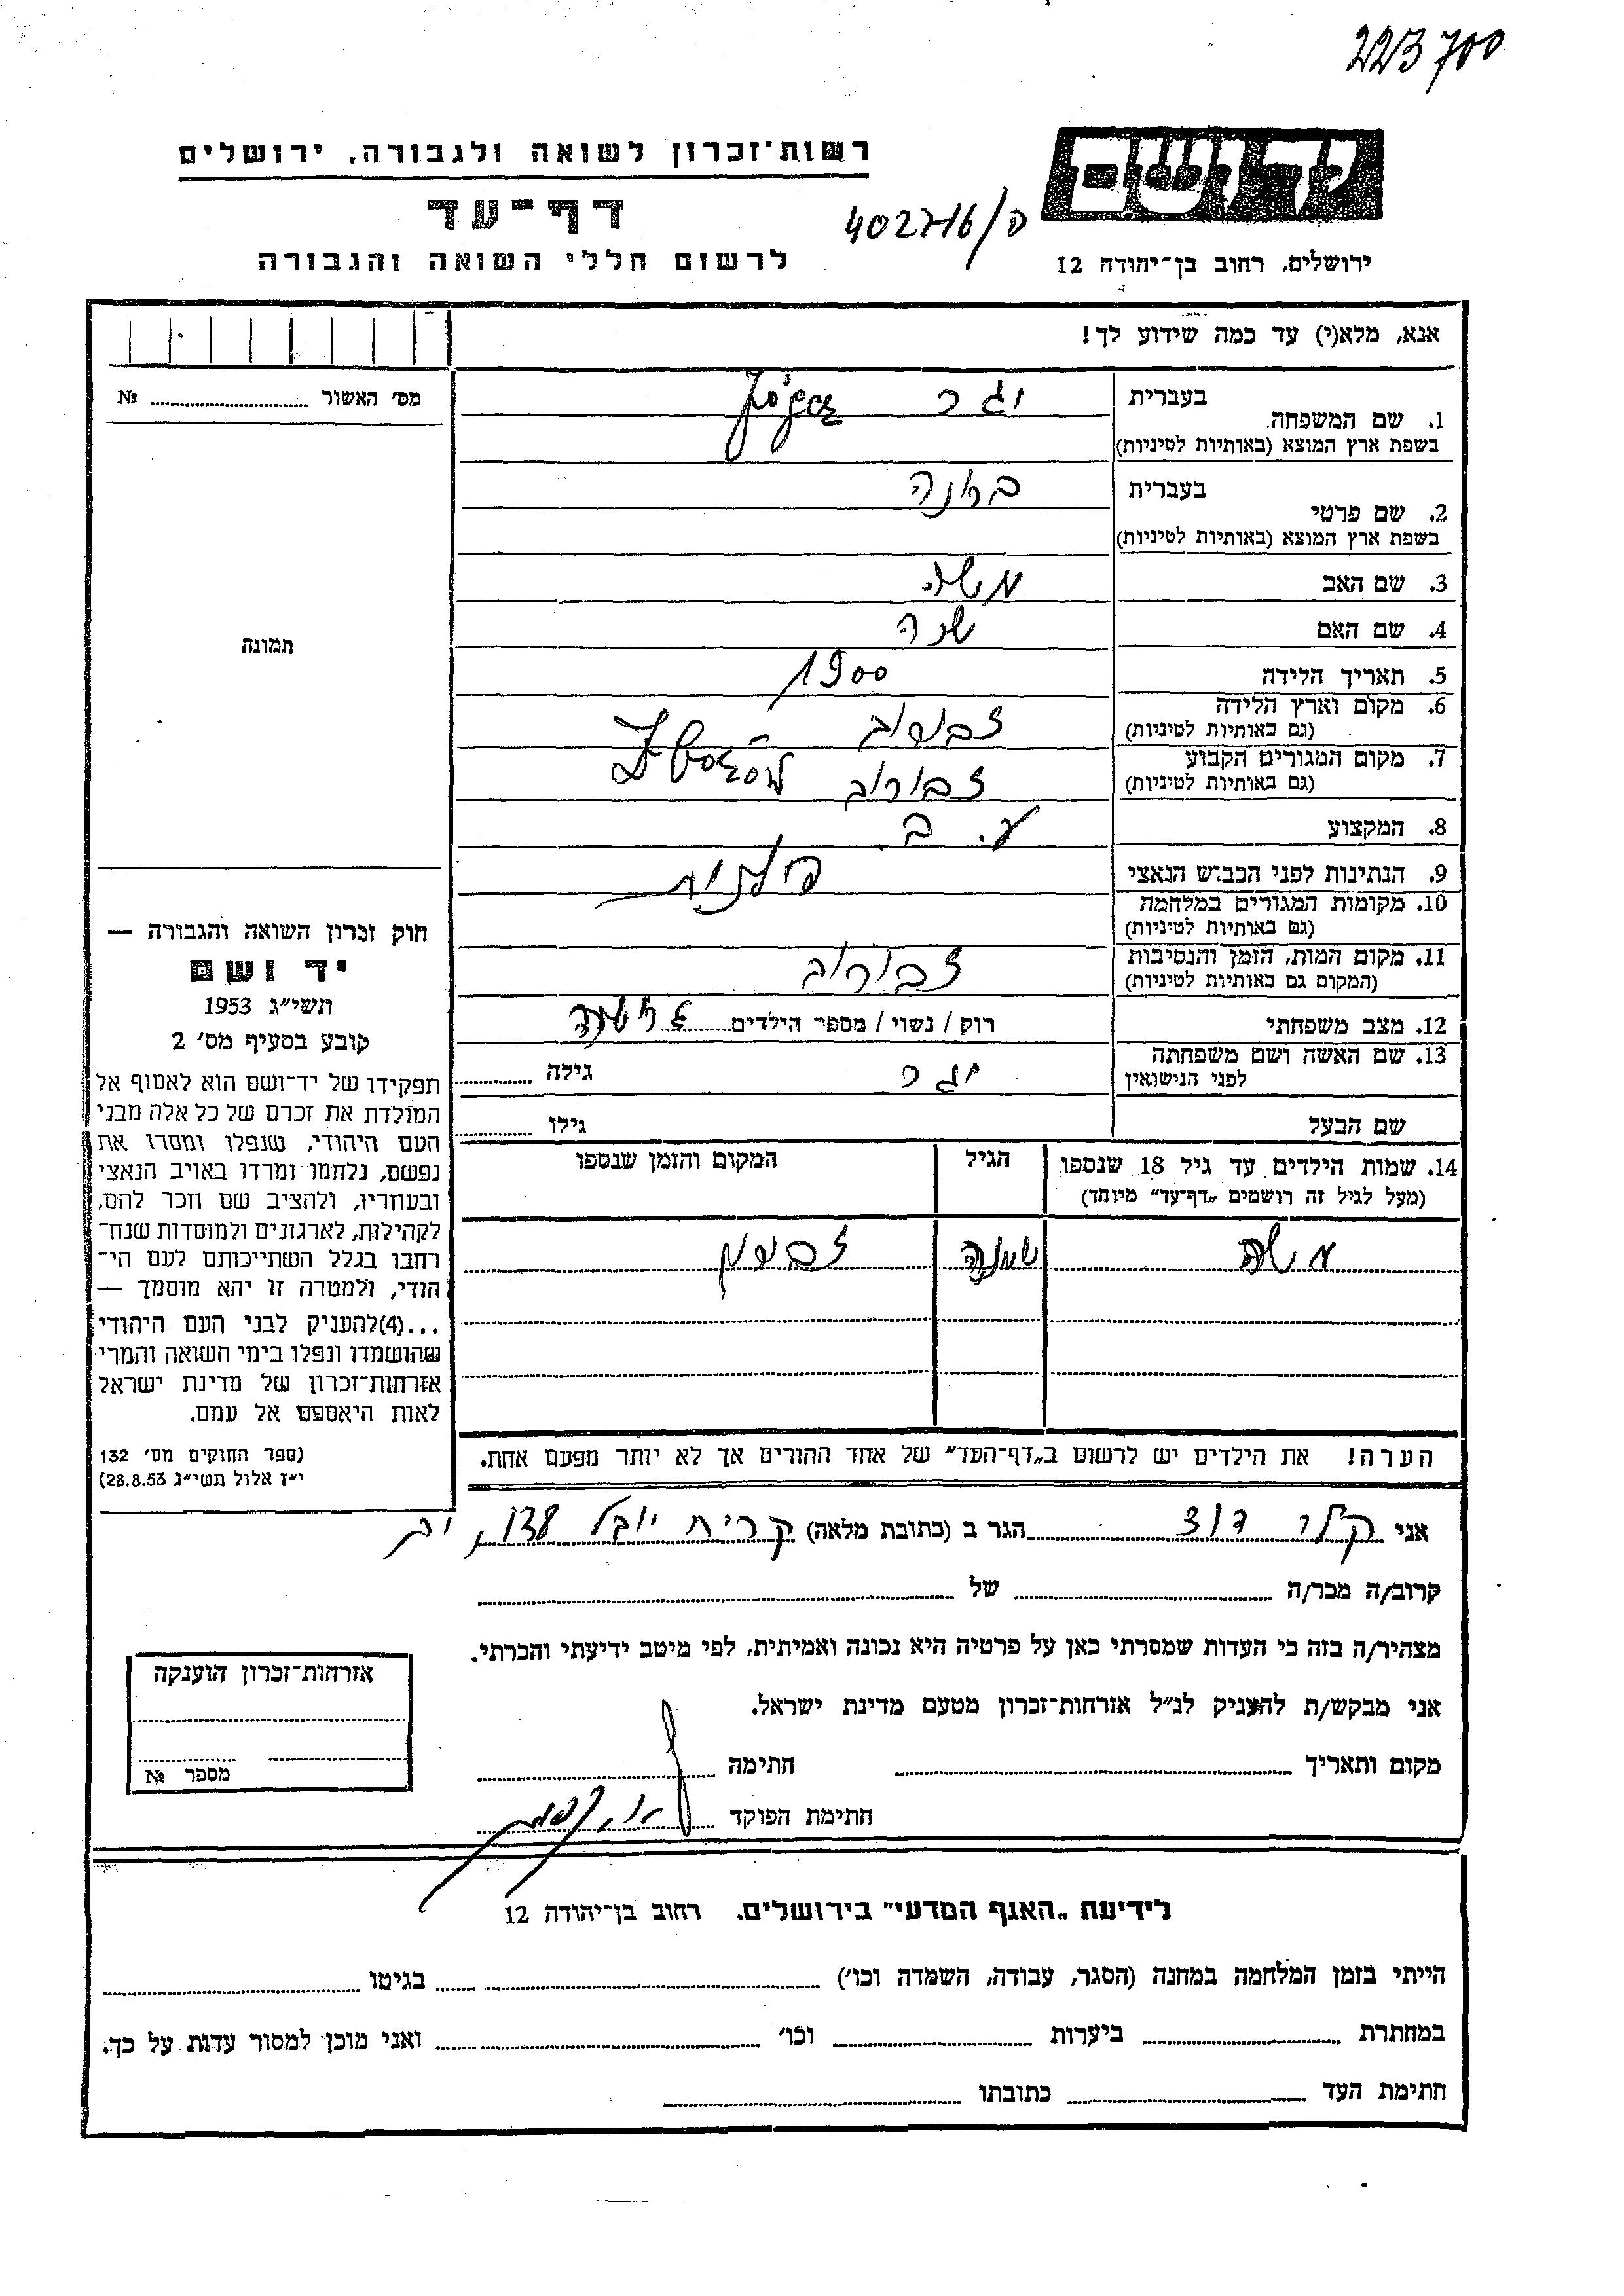 223700
רשות־זכרון לשואה ולגבורה, ירושלים
יד ושם
דף־עד
402716/ה
לרשום חללי השואה והגבורה
ירושלים, רחוב בן־יהודה 12
אנא, מלא(י) עד כמה שידוע לך!
מס׳ האשור № 
1. שם המשפחה בעברית יגר
בשפת ארץ המוצא (באותיות לטיניות)
2. שם פרטי בעברית
בשפת ארץ המוצא (באותיות לטיניות)
3. שם האב משה
4. שם האם שנה
תמונה
5. תאריך הלידה 1900
6. מקום וארץ הלידה זבורוב
(גם באותיות לטיניות)
7. מקום המגורים הקבוע זבורוב
(גם באותיות לטיניות)
8. המקצוע ע. ב.
9. הנתינות לפני הכבוש הנאצי
10. מקומות המגורים במלחמה
(גם באותיות לטיניות)
11. מקום המות, הזמן והנסיבות זבורוב
(המקום גם באותיות לטיניות)
12. מצב משפחתי רוק / נשוי / מספר הילדים
13. שם האשה ושם משפחתה יגר גילה
לפני הנישואין
שם הבעל גילו
14. שמות הילדים עד גיל 18 שנספו הגיל המקום והזמן שנספו
(מעל לגיל זה רושמים „דף־עד" מיוחד)
משה שמונה
הערה! את הילדים יש לרשום ב„דף־העד" של אחד ההורים אך לא יותר מפעם אחת.
חוק זכרון השואה והגבורה —
יד ושם
תשי״ג 1953
קובע בסעיף מס׳ 2
תפקידו של יד־ושם הוא לאסוף אל
המולדת את זכרם של כל אלה מבני
העם היהודי, שנפלו ומסרו את
נפשם, נלחמו ומרדו באויב הנאצי
ובעוזריו, ולהציב שם וזכר להם,
לקהילות, לארגונים ולמוסדות שנח־
רחבו בגלל השתייכותם לעם הי־
הודי, ולמטרה זו יהא מוסמך —
...(4)להעניק לבני העם היהודי
שהושמדו ונפלו בימי השואה והמרי
אזרחות־זכרון של מדינת ישראל
לאות היאספם אל עמם.
(ספר החוקים מס׳ 132
י״ז אלול תשי״ג 28.8.53)
אני דוד הגר ב (כתובת מלאה) קרית יובל 138,
קרוב/ה מכר/ה של
מצהיר/ה בזה כי העדות שמסרתי כאן על פרטיה היא נכונה ואמיתית, לפי מיטב ידיעתי והכרתי.
אני מבקש/ת להעניק לנ״ל אזרחות־זכרון מטעם מדינת ישראל.
מקום ותאריך חתימה
חתימת הפוקד
אזרחות־זכרון הוענקה
מספר №
לידיעת „האגף המדעי" בירושלים. רחוב בן־יהודה 12
הייתי בזמן המלחמה במחנה (הסגר, עבודה, השמדה וכו׳) בגיטו
במחתרת ביערות וכו׳ ואני מוכן למסור עדות על כך.
חתימת העד כתובתו